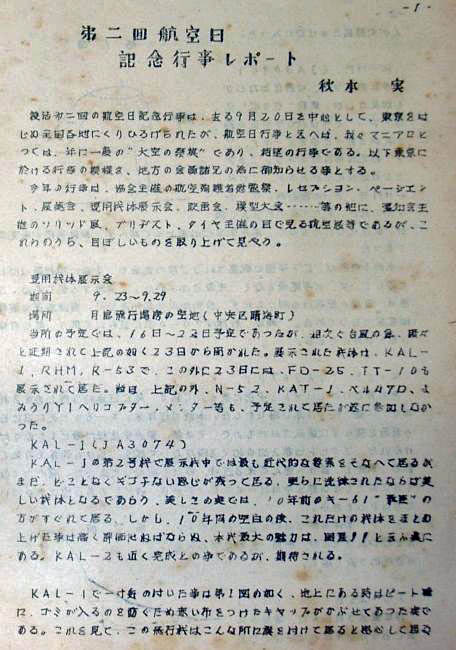 - 1 -
第二回航空日
記念行事レポート
秋本 実
復活第二回の航空日記念行事は、去る9月20日を中心として、東京をは
じめ全国各地にくりひろげられたが、航空日行事と云へば、我々マニアにと
つては、年に一度の"大空の祭典"であり、
の行事である。以下東京に
於ける行事の模様を、地方の会員諸兄の為に御知らせる事とする。
今年の行事は、協会主催の航空殉職者慰霊祭、レセプション、ページエン
ト、展覧会、実用機体展示会、映画会、模型大会……等の他に、
主
催のソリッド展、ブリヂスト、ダイヤ主催の目で見る航空展等であるが、こ
れらのうち、目ぼしいものを取り上げて見やう。
実用機体展示会
期間 9.23〜9.29
場所 月島飛行場前の空地(中央区晴海町)
当所の予定では、16日〜22日予定であつたが、相次ぐ台風の為、
と延期されて上記の如く23日から開かれた。展示された機体は、KAL-
1、RHM、R-53で、この外に23日には、FD-25、TT-10も
展示されて居た。尚、上記の外、N-52、KAT-1、ベル47D、よ
みうりY1ヘリコプター、
等も、予定されて居たが遂に参加しなか
つた。
KAL-1(JA3074)
KAL-1の第2号機で展示機中では最も近代的な姿態をそなへて居るが
まだ、どことなくギコチない感じが残つて居る。更らに洗練されたならば美
しい機体となるであらう、美しさの点では、10年前のキー61"飛燕"の
方がすぐれて居る。しかし、10年間の空白の後、これだけの機体をまとめ
上げた事は高く評価せねばならぬ、本機最大の魅力は、国産!!と云ふ点に
ある。KAL-2も近く完成との事であるが、期待される。
KAL-1で一寸気の付いた事は第1図の如く、地上にある時はピート管
に、ゴミが入るのを防ぐため赤い布をつけたキャップがかぶせてあつた事で
ある。これを見て、この飛行機はこんな所に旗を付けて居ると感心して居る